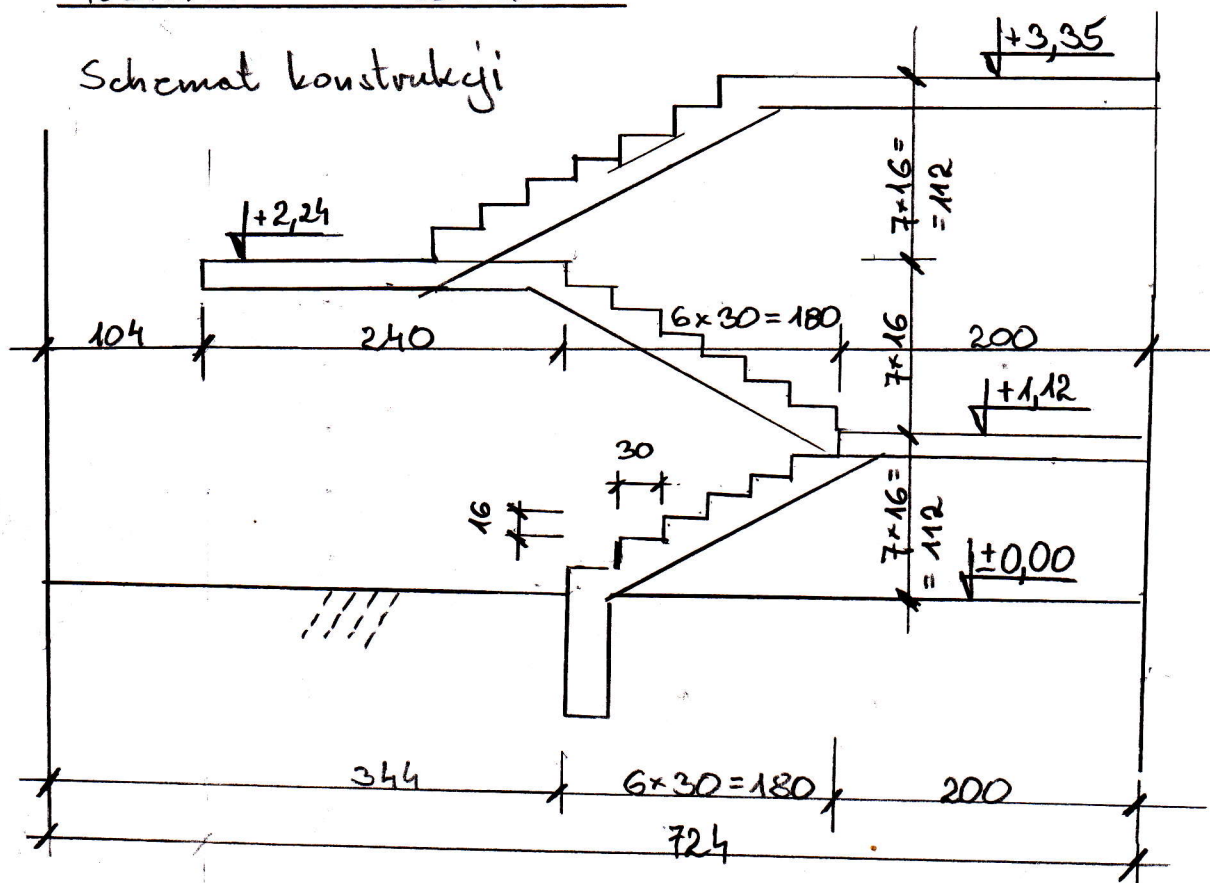 Schemat konstrukcji
+3,35
7×16=
=112
+2,24
6×30=180
104
240
7×16
200
+1,12
30
16
7×16=
=112
±0,00
344
6×30=180
200
724